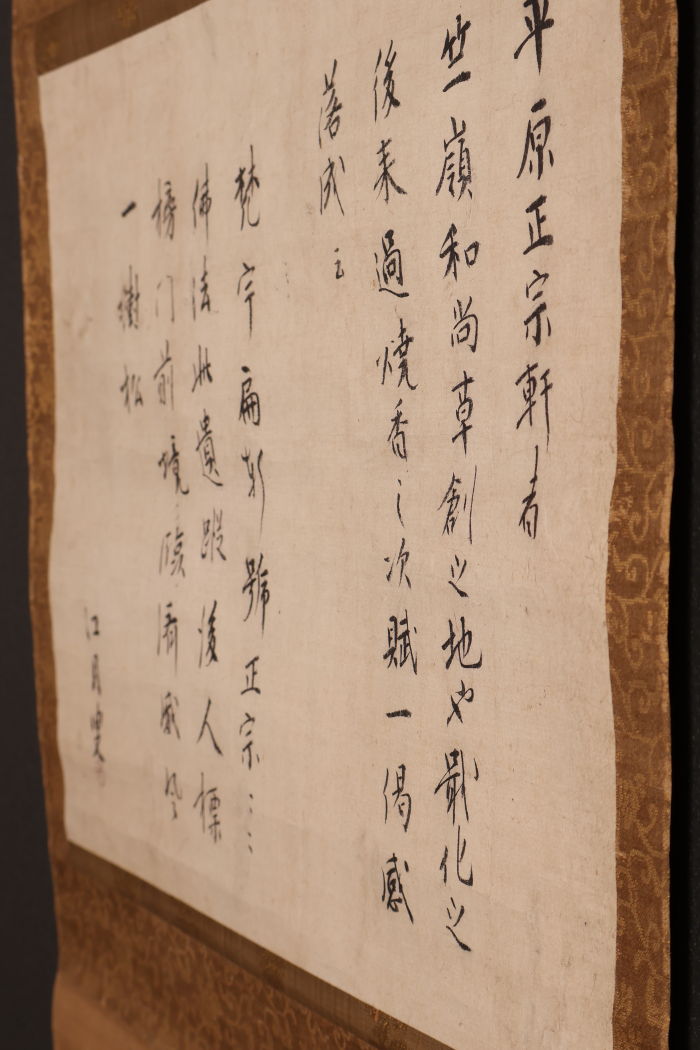 平原正宗軒者
竺嶺和尚草創之地也戢化之
後来過燒香之次賦一偈感
落成云
梵宇扁新號正宗〻〻
佛法此遺蹤後人標
榜門前境
一樹松
江月叟